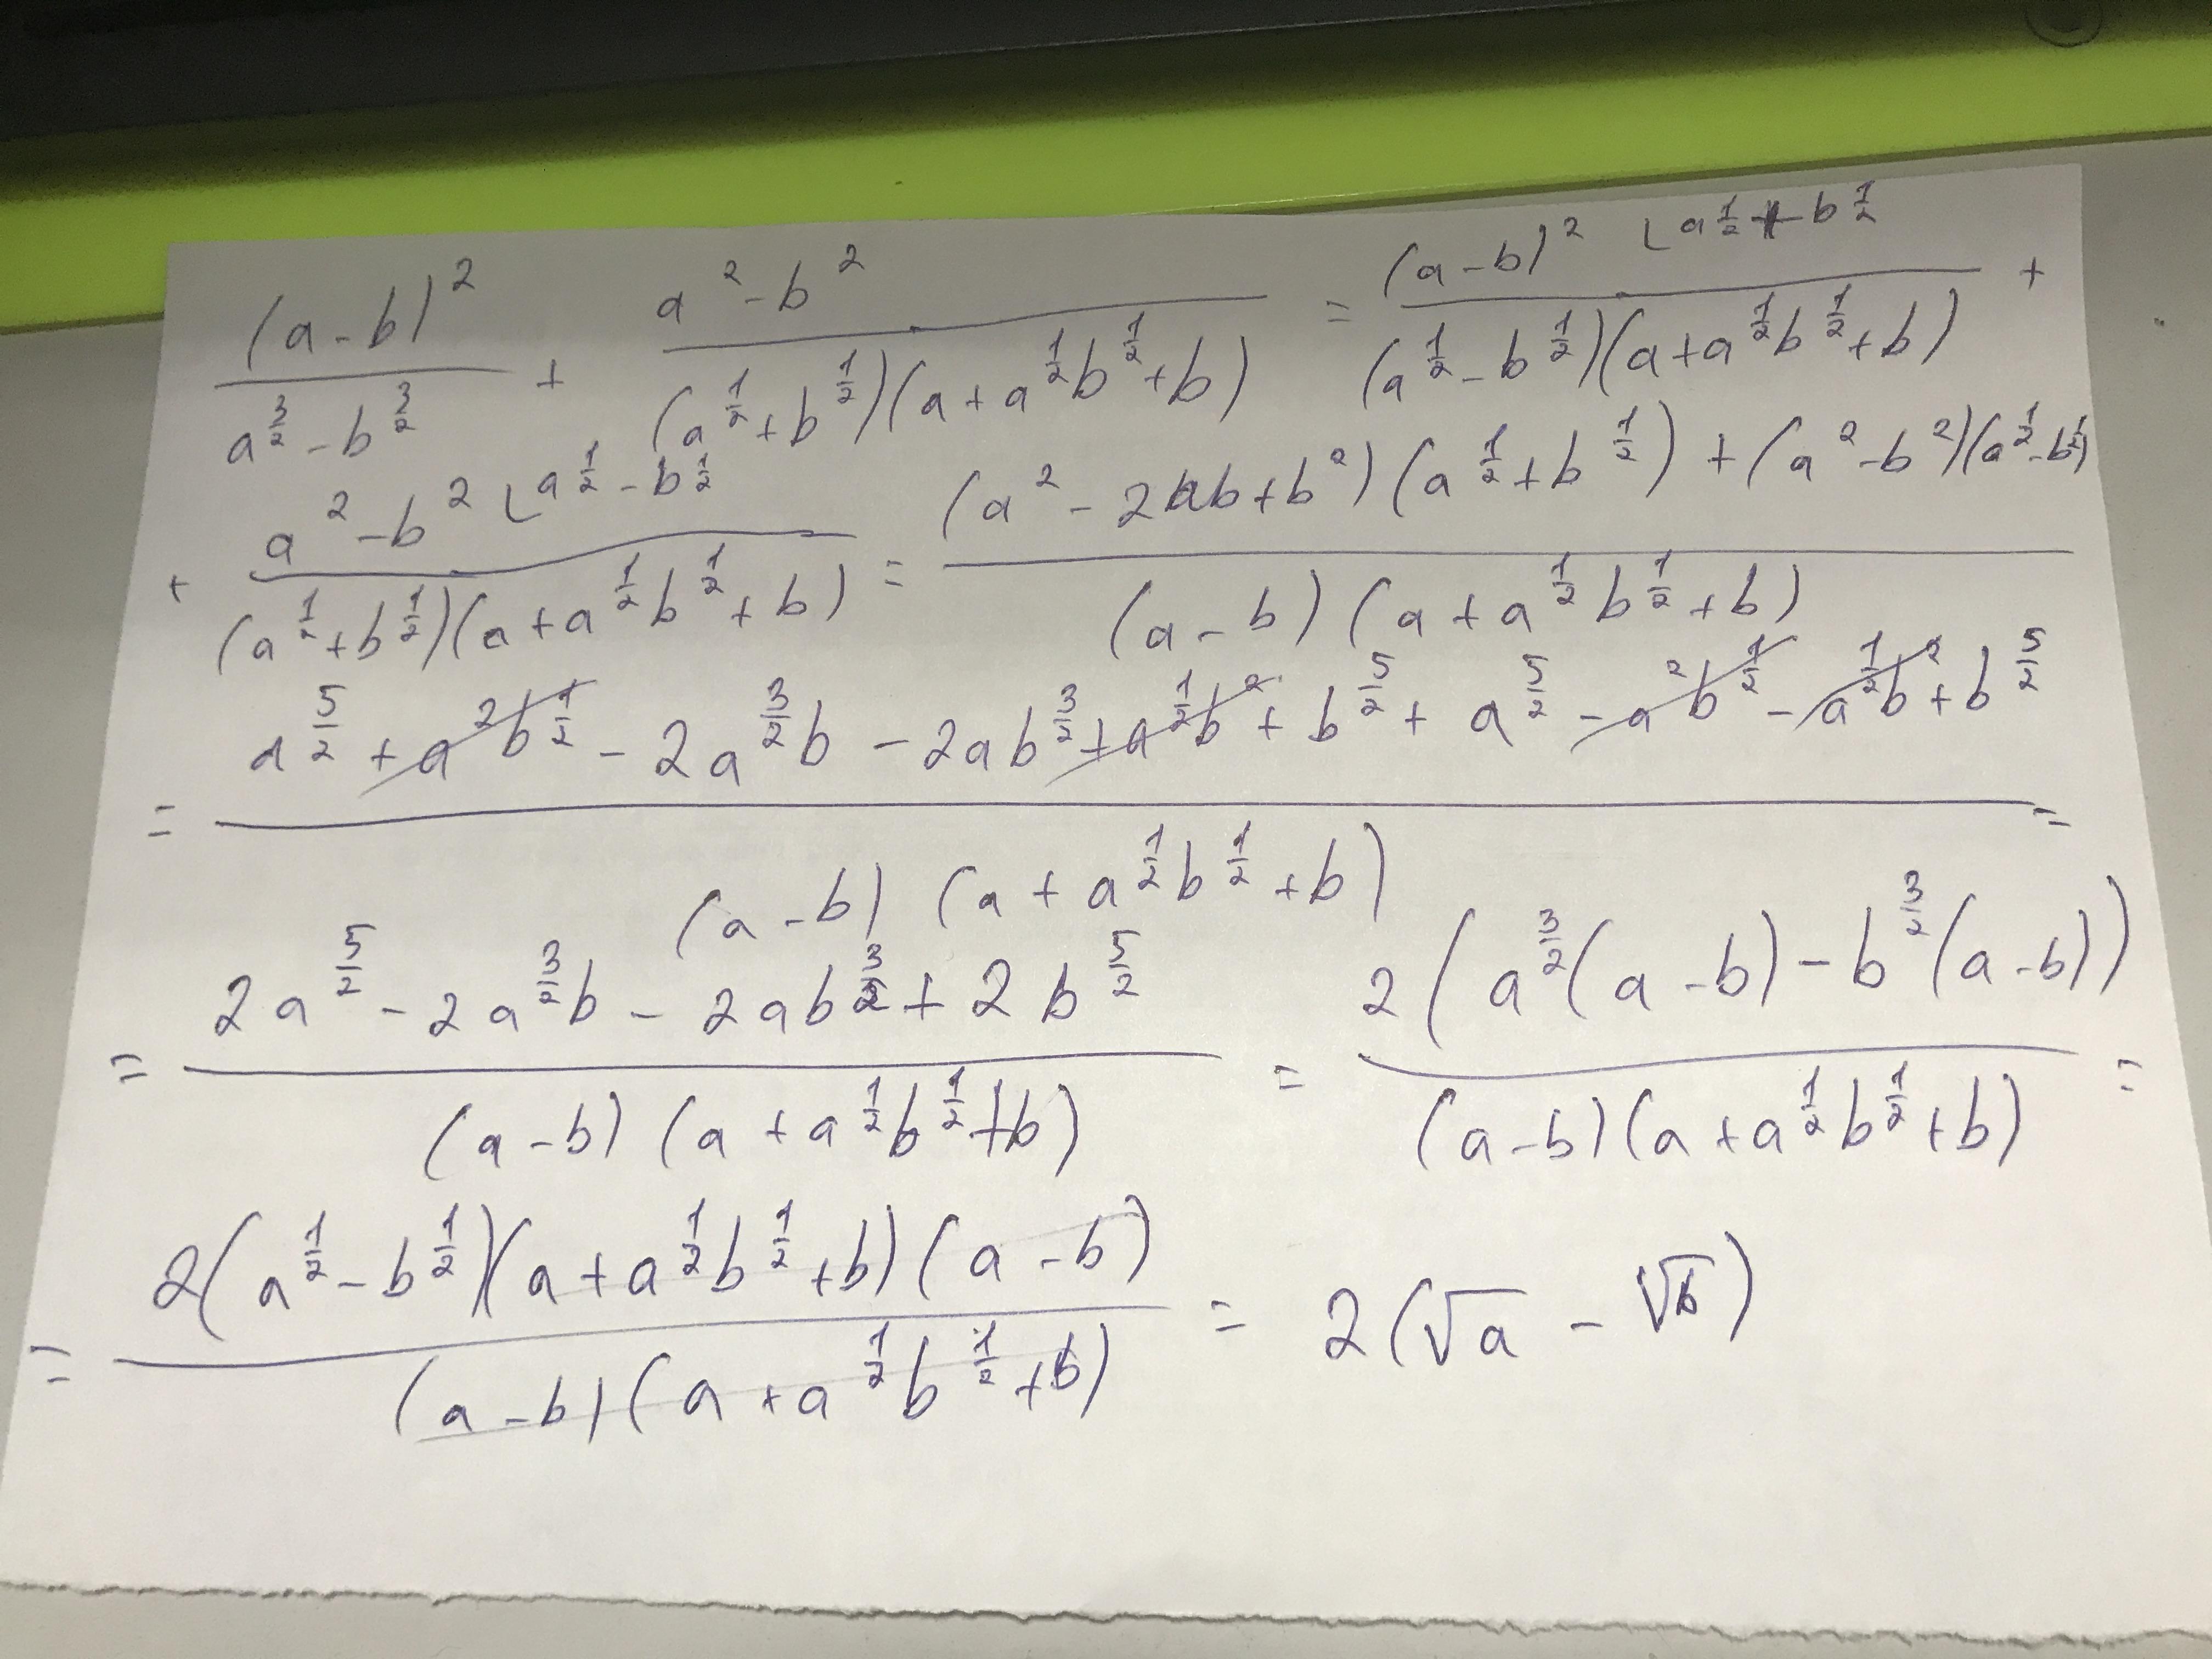 (a-b)²/(a^(3/2) - b^(3/2)) + (a²-b²)/((a^(1/2)+b^(1/2))(a+a^(1/2)b^(1/2)+b)) = (a-b)² ⌊a^(1/2)+b^(1/2)/((a^(1/2)-b^(1/2))(a+a^(1/2)b^(1/2)+b)) +
+ a²-b² ⌊a^(1/2)-b^(1/2)/((a^(1/2)+b^(1/2))(a+a^(1/2)b^(1/2)+b)) = ((a²-2ab+b²)(a^(1/2)+b^(1/2))+(a²-b²)(a^(1/2)-b^(1/2)))/((a-b)(a+a^(1/2)b^(1/2)+b))
= (a^(5/2)+a²b^(1/2)-2a^(3/2)b-2ab^(3/2)+a^(1/2)b²+b^(5/2)+a^(5/2)-a²b^(1/2)-a^(1/2)b²+b^(5/2))/((a-b)(a+a^(1/2)b^(1/2)+b)) =
= (2a^(5/2)-2a^(3/2)b-2ab^(3/2)+2b^(5/2))/((a-b)(a+a^(1/2)b^(1/2)+b)) = 2(a^(3/2)(a-b)-b^(3/2)(a-b))/((a-b)(a+a^(1/2)b^(1/2)+b)) =
= 2(a^(1/2)-b^(1/2))(a+a^(1/2)b^(1/2)+b)(a-b)/((a-b)(a+a^(1/2)b^(1/2)+b)) = 2(√a - √b)